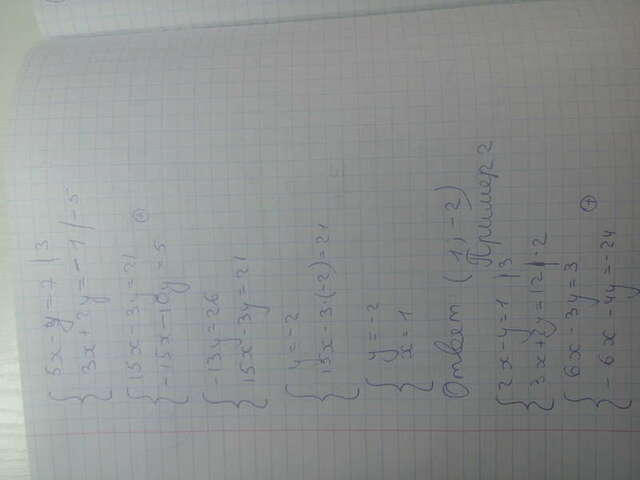 5x-y=7 |3
3x+2y=-1 |-5
15x-3y=21
-15x-10y=5
+
-13y=26
15x-3y=21
y=-2
15x-3·(-2)=21
y=-2
x=1
Ответ (1;-2)
Пример 2
2x-y=1 |3
3x+2y=12 |-2
6x-3y=3
-6x-4y=-24
+